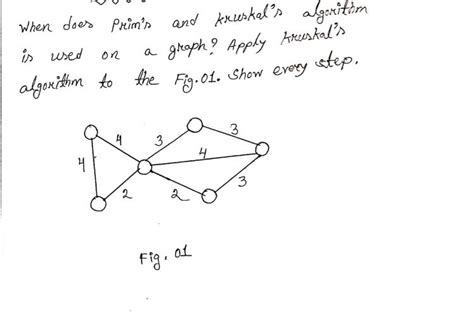 When does Prim's and kruskal's algorithm
is used on a graph? Apply kruskal's
algorithm to the Fig.01. Show every step.
4
3
3
4
4
2
2
3
Fig. 01